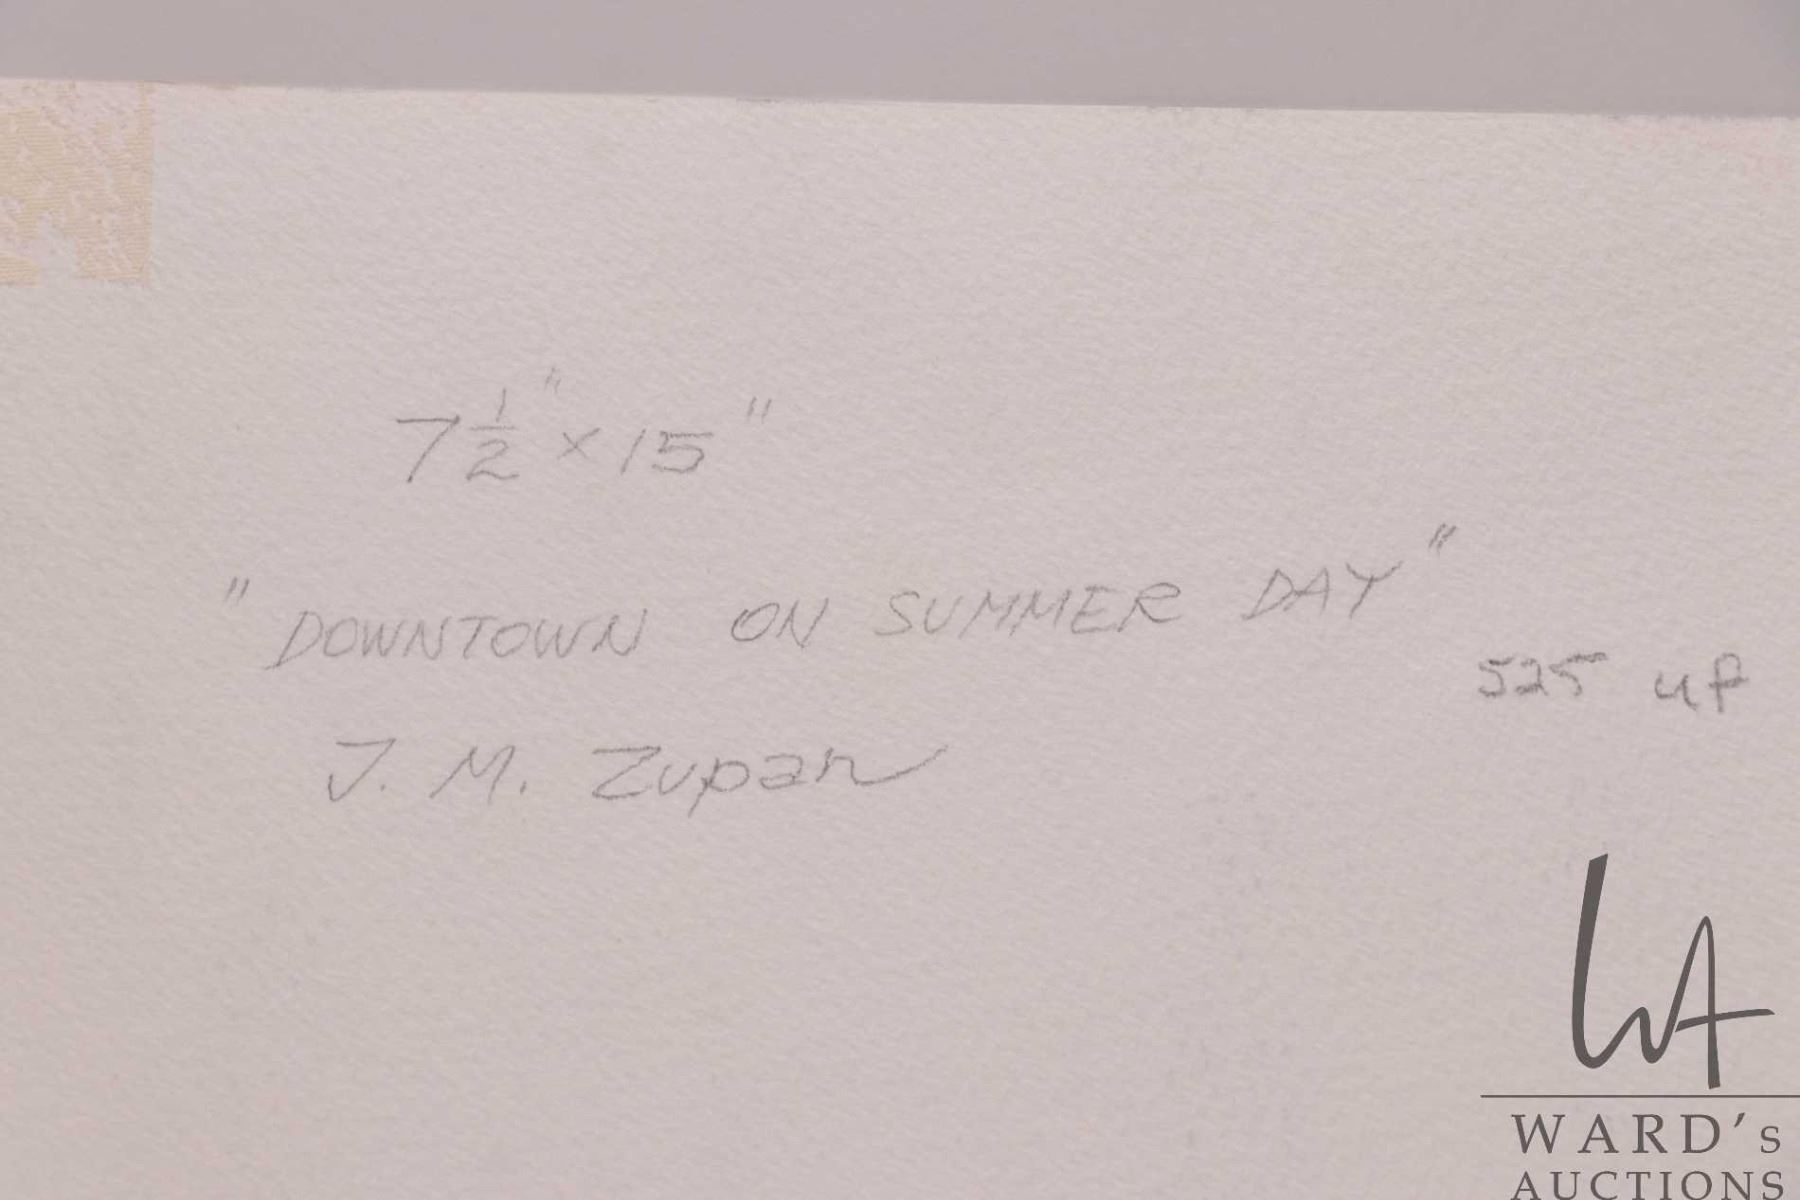 7 1/2" x 15"
"DOWNTOWN ON SUMMER DAY"
525 uf
J. M. Zupan
WA
WARD's
AUCTIONS